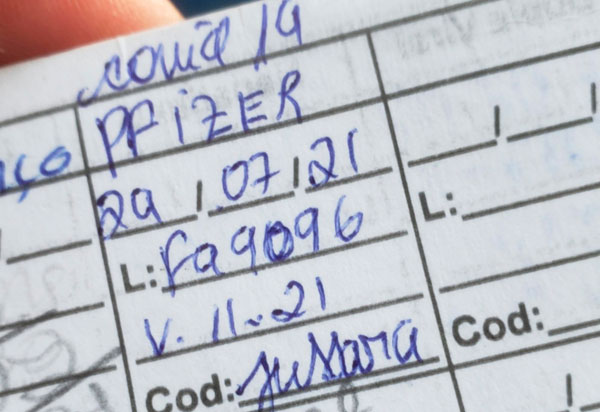 covid 19
PFiZER
29/07/21
L: Fa9096
V. 11-21
Cod: Jussara
/ /
L:
Cod: